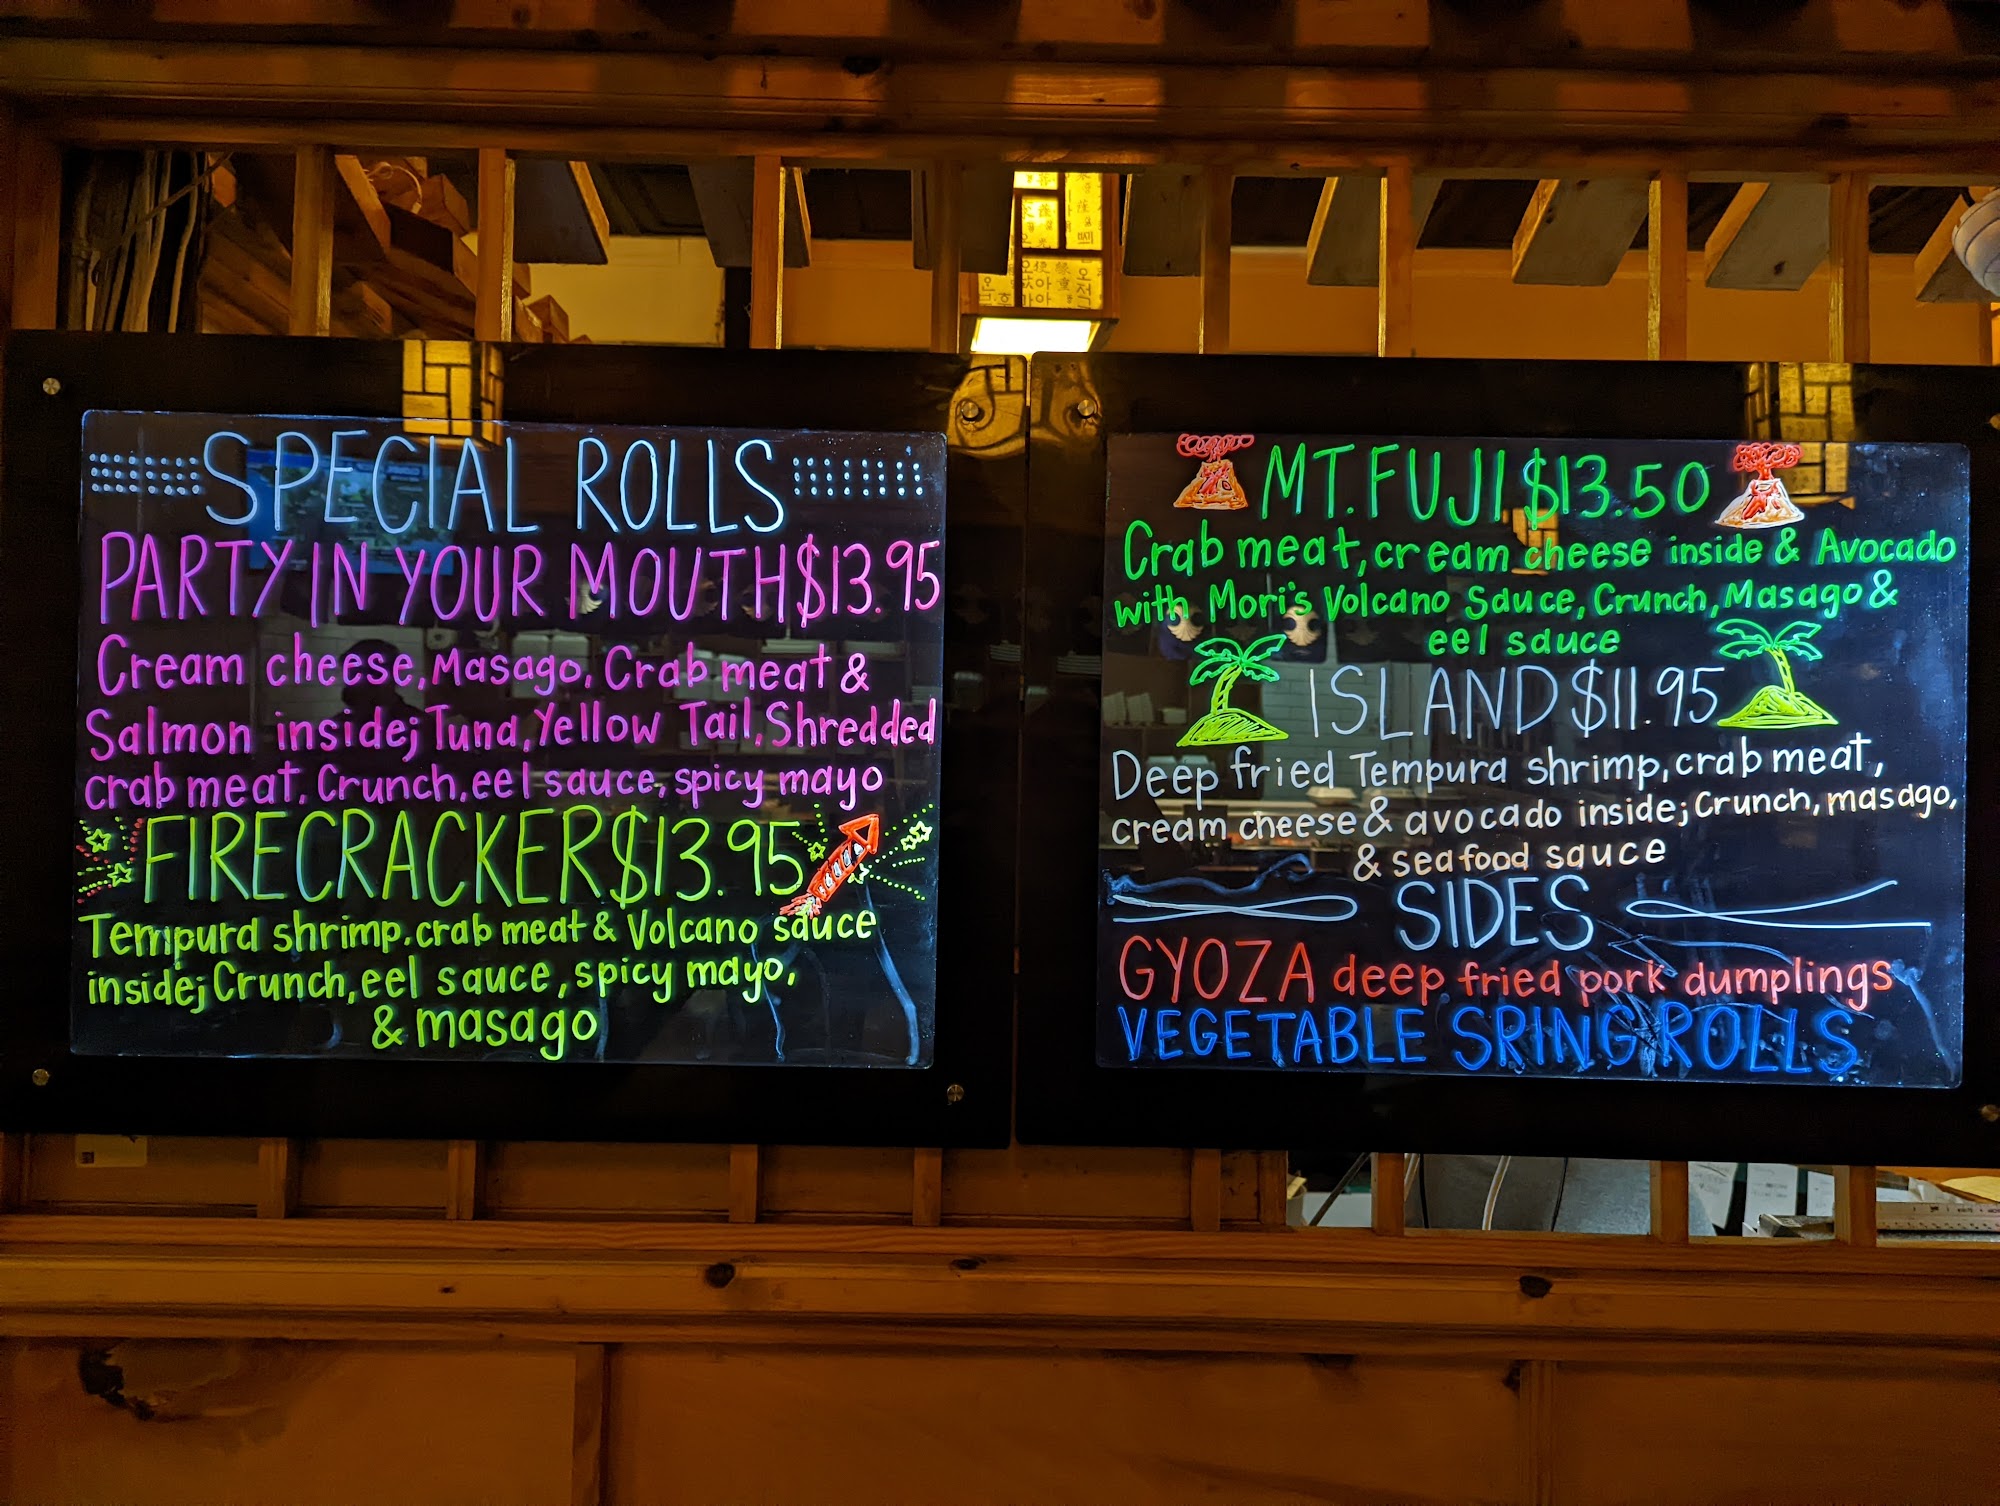 SPECIAL ROLLS
PARTY IN YOUR MOUTH $13.95
Cream cheese, Masago, Crab meat &
Salmon inside; Tuna, Yellow Tail, Shredded
crab meat, Crunch, eel sauce, spicy mayo
FIRECRACKER $13.95
Tempura shrimp, crab meat & Volcano sauce
inside; Crunch, eel sauce, spicy mayo,
& masago
MT. FUJI $13.50
Crab meat, cream cheese inside & Avocado
with Mori's Volcano Sauce, Crunch, Masago &
eel sauce
ISLAND $11.95
Deep fried Tempura shrimp, crab meat,
cream cheese & avocado inside; Crunch, masago,
& seafood sauce
SIDES
GYOZA deep fried pork dumplings
VEGETABLE SRING ROLLS